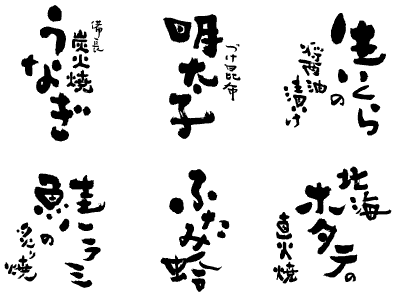 生いくらの
醤油
漬け
づけ昆布
明太子
備長
炭火焼
うなぎ
北海
ホタテの
直火焼
ふたみ蛤
鮭ハラミ
の
炙り焼